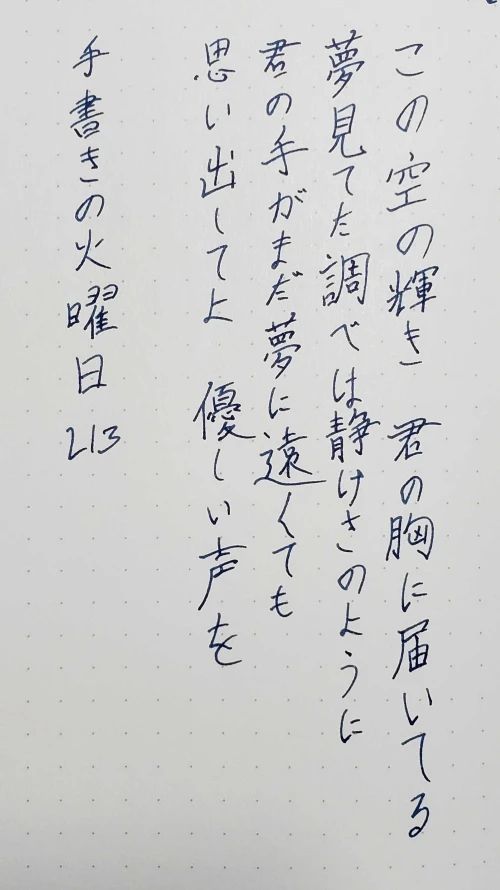 この空の輝き 君の胸に届いてる
夢見てた調べは静けさのように
君の手がまだ夢に遠くても
思い出してよ 優しい声を
手書きの火曜日 213